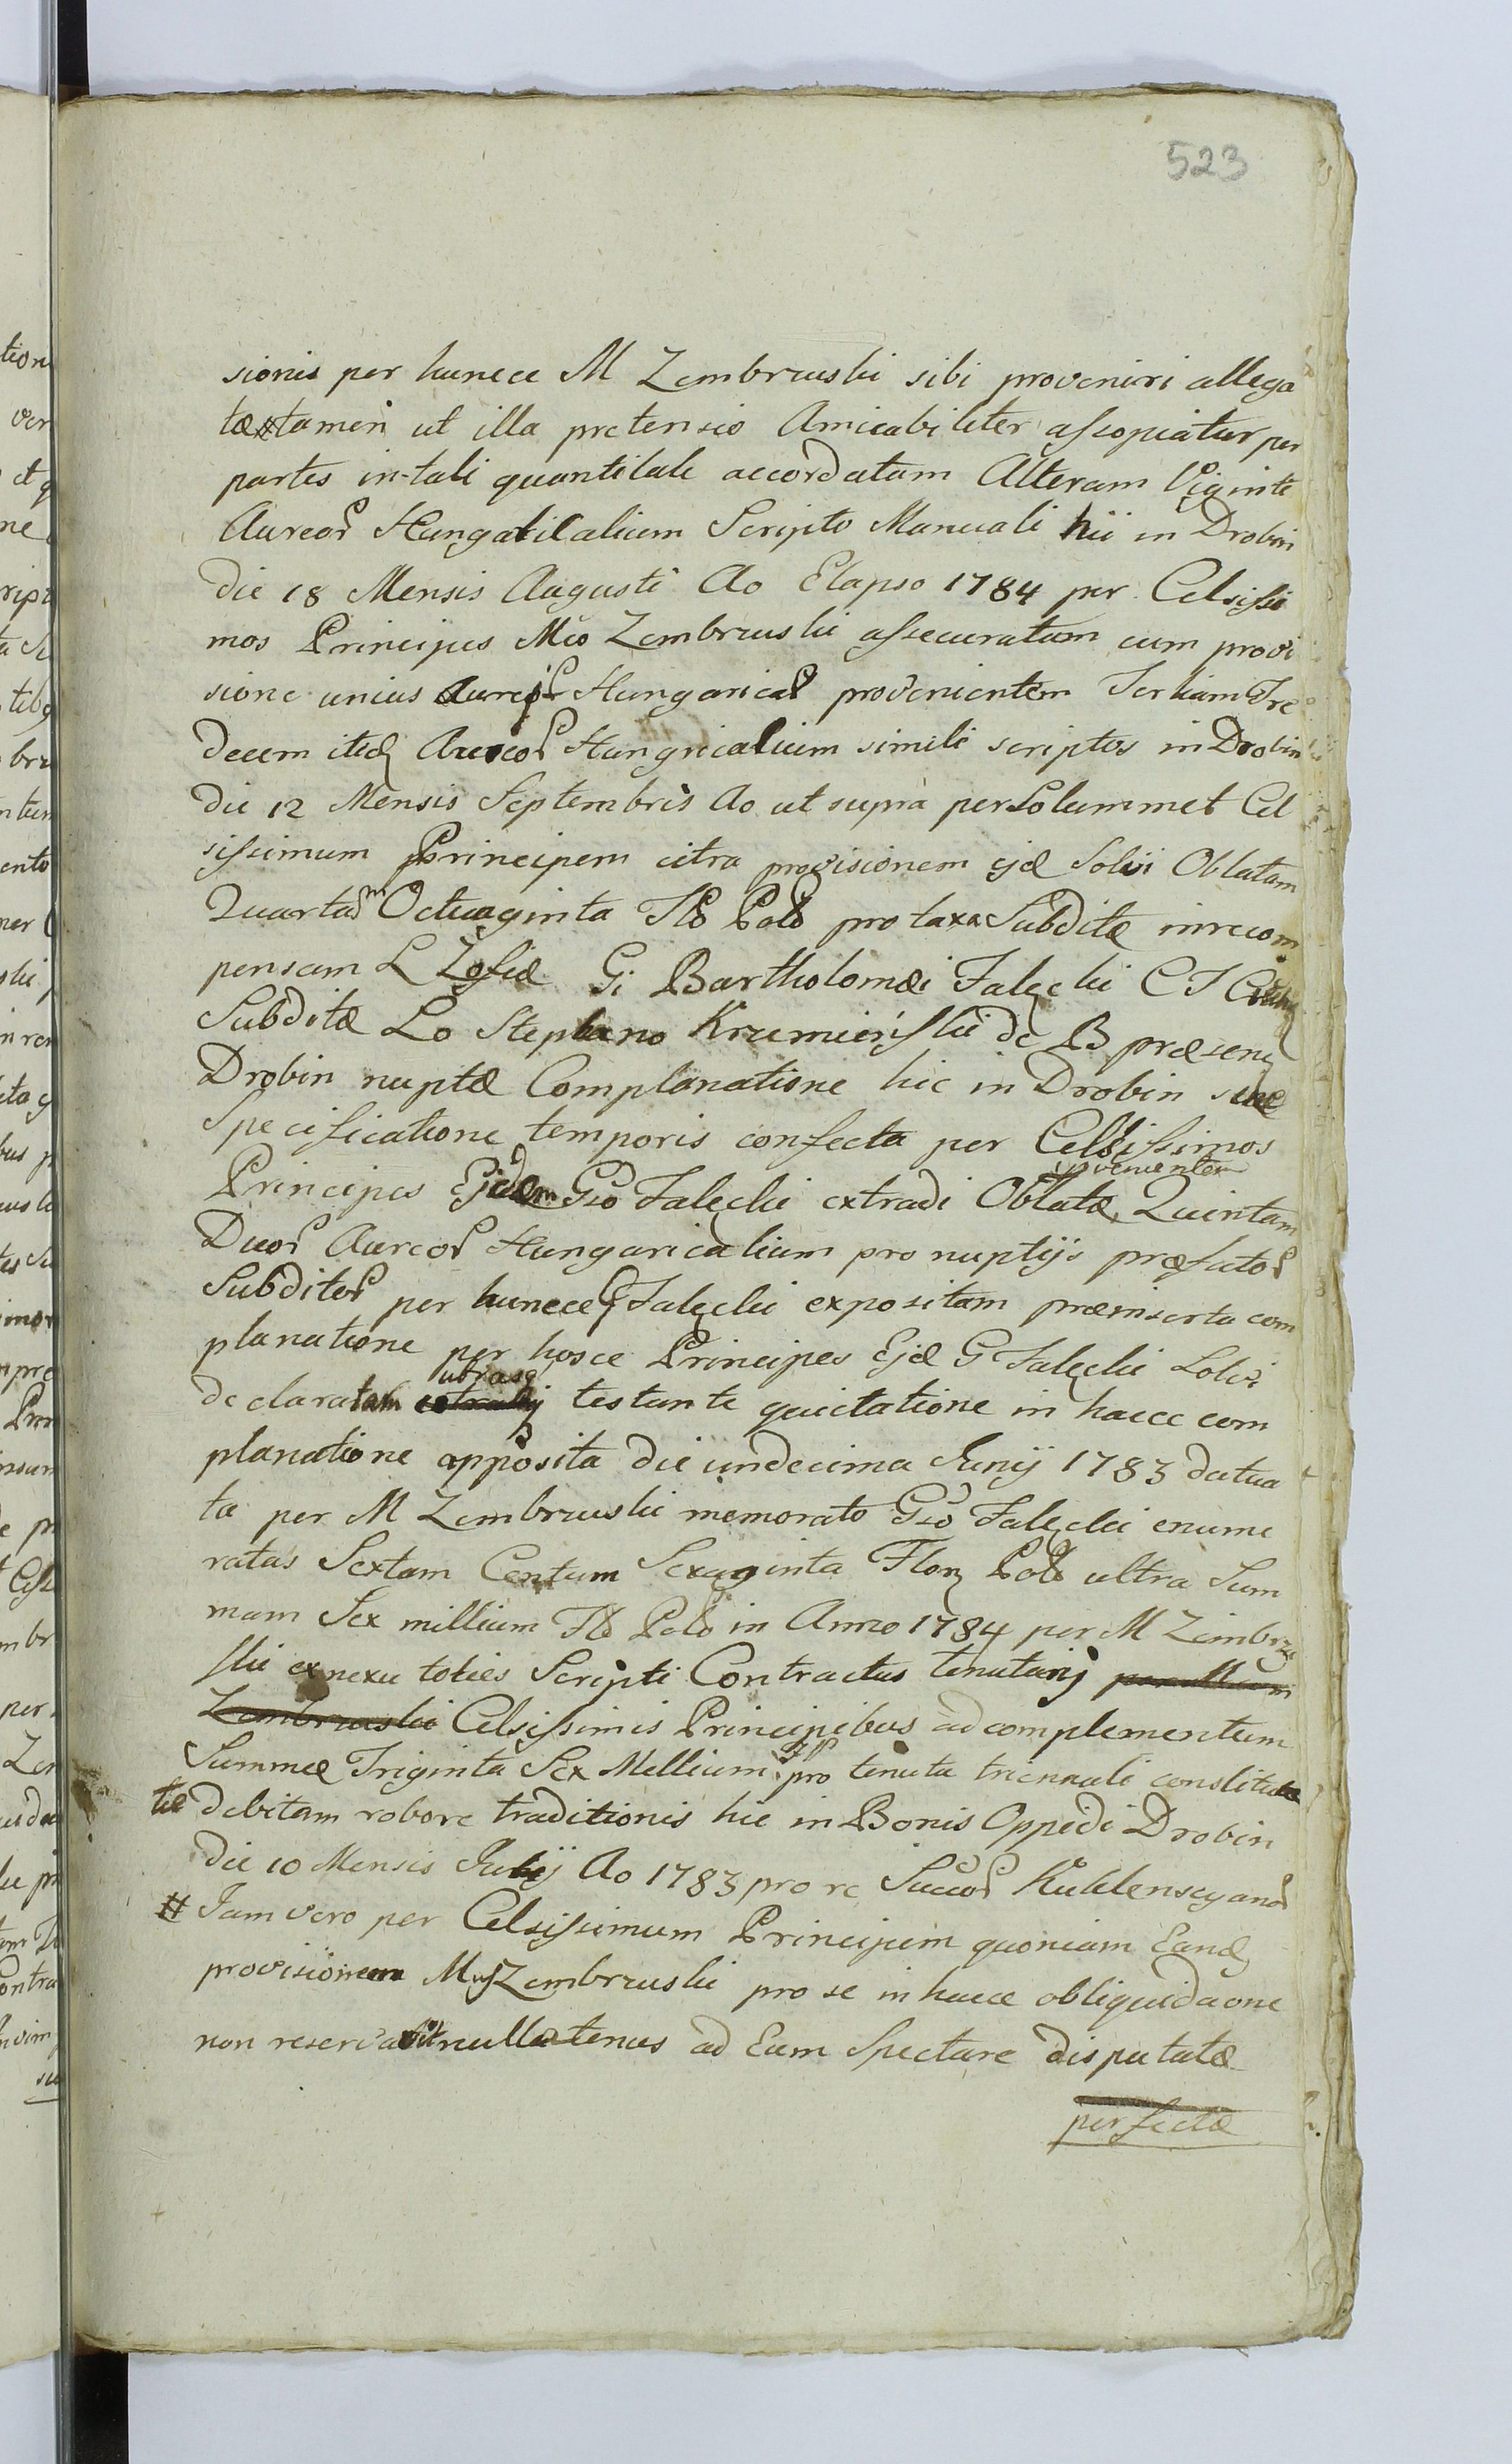 523
sionis per huncce M Zembrzuski sibi proveniri allega
tæ # tamen ut illa pretensio Amicabiliter assopiatur per
partes in tali quantitate accordatam Alteram Viginti
Aureor Hungaricalium Scripto Manuali hic in Drobin
die 18 Mensis Augusti Ao Elapso 1784 per Celsissi
mos Principes Mco Zembrzuski assecuratam cum provi
sione unius Hungarical provenientem Tertiam Tre
decem itid Aureor Hungricalium simili scripto in Drobin
die 12 Mensis Septembris Ao ut supra per Solummet Cel
sissimum Principem citra provisionem ejd Solvi Oblatam
Quartam Octuaginta Flo Polo pro taxa Subditæ in recom
pensam L Zofiæ G. Bartholomæi Falęcki C T
Subditæ Lo Stephano Krzemiński de B præsen
Drobin nuptæ Complanatione hic in Drobin sine
Specificatione temporis confecta per Celsissimos
provenientem
Principes Ejdem Gso Falęcki extradi Oblatæ Quintam
Duor Aureor Hungaricalium pro nuptijs præfator
Subditor per huncce G Falęcki expositam præinserta com
planatione per hosce Principes Ejd G Falęcki Solvi
utrasq
declaratam testante quietatione in hacce com
planatione apposita die undecima Junij 1783 datua
ta per M Zembrzuski memorato Gso Falęcki enume
ratas Sextam Centum Sexaginta Flor Polo ultra Sum
mam Sex millium Flo Polo in Anno 1784 per M Zembrzu
ski ex nexu toties Scripti Contractus tenutarij
Zembrzuski Celsissimis Principibus ad complementum
Summæ Triginta Sex Millium pro tenuta triennali constitu
tæ debitam robore traditionis hic in Bonis Oppidi Drobin
die 10 Mensis Julij Ao 1783 pro re Succor
# Jam vero per Celsissimum Principem quoniam Eand
provisionem M Zembrzuski pro se in hacce obliquidaone
non reservavit nullatenus ad Eum Spectare disputatæ
perfectæ